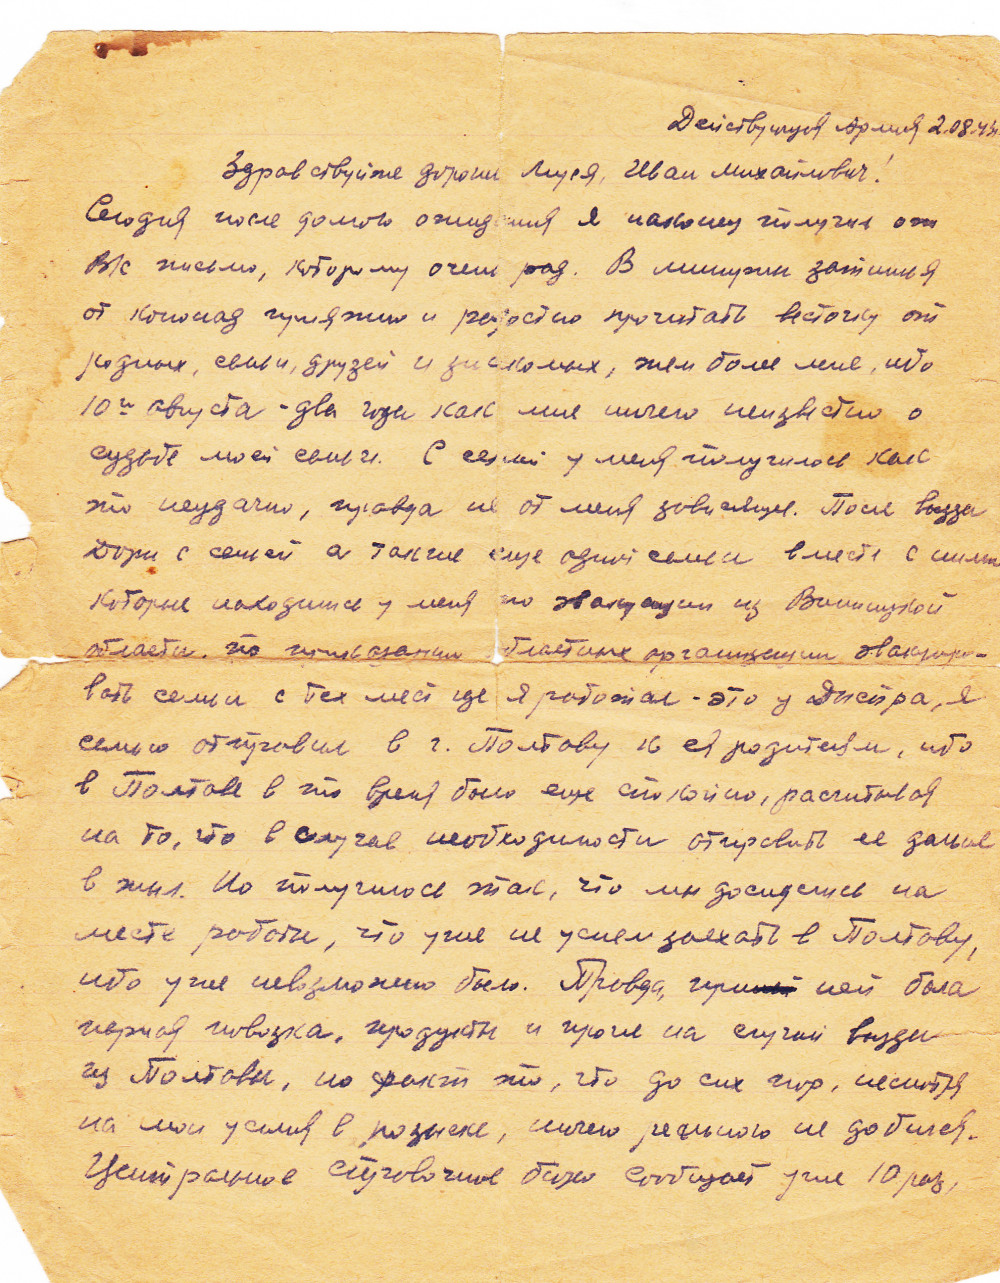 Действующая Армия 2.08.43
Здравствуйте дорогие Муся, Иван Михайлович!
Сегодня после долгого ожидания я наконец получил от
Вас письмо, которому очень рад. В минуты затишья
от канонад приятно и радостно прочитать весточку от
родных, семьи, друзей и знакомых, тем более мне, ибо
10го августа - два года как мне ничего неизвестно о
судьбе моей семьи. С семьей у меня получилось как
то неудачно, правда не от меня зависящее. После выезда
Доры с семьей а также еще одной семьи вместе с ними
которые находились у меня по эвакуации из Винницкой
области. по приказанию областных организации эвакуиро-
вать семьи с тех мест где я работал - это у Днестра, я
семью отправил в г. Полтаву к ея родителям, ибо
в Полтаве в то время было еще спокойно, расчитывая
на то, что в случае необходимости отправить ее дальше
в тыл. Но получилось так, что мы досиделись на
месте работы, что уже не успел заехать в Полтаву,
ибо уже невозможно было. Правда, при ней была
парная повозка, продукты и проче на случай выезда
из Полтавы, но факт то, что до сих пор, несмотря
на мои усилия в розыске, ничего реального не добился.
Центральное справочное бюро сообщает уже 10 раз,